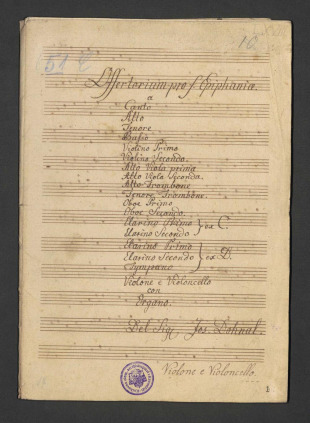 10.
51 E
Offertorium pro f Epiphaniæ.
a
Canto
Alto
Tenore
Basso
Violino Primo
Violino Secondo.
Alto Viola prima
Alto Viola Seconda.
Alto Trombone
Tenore Trombone.
Oboe Primo
Oboe Secondo.
Clarino Primo
Clarino Secondo } ex C.
Clarino Primo
Clarino Secondo } ex D.
Tympano
Violone e Violoncello
con
Organo.
Del Sig: Jos. Dohnal.
Violone e Violoncello